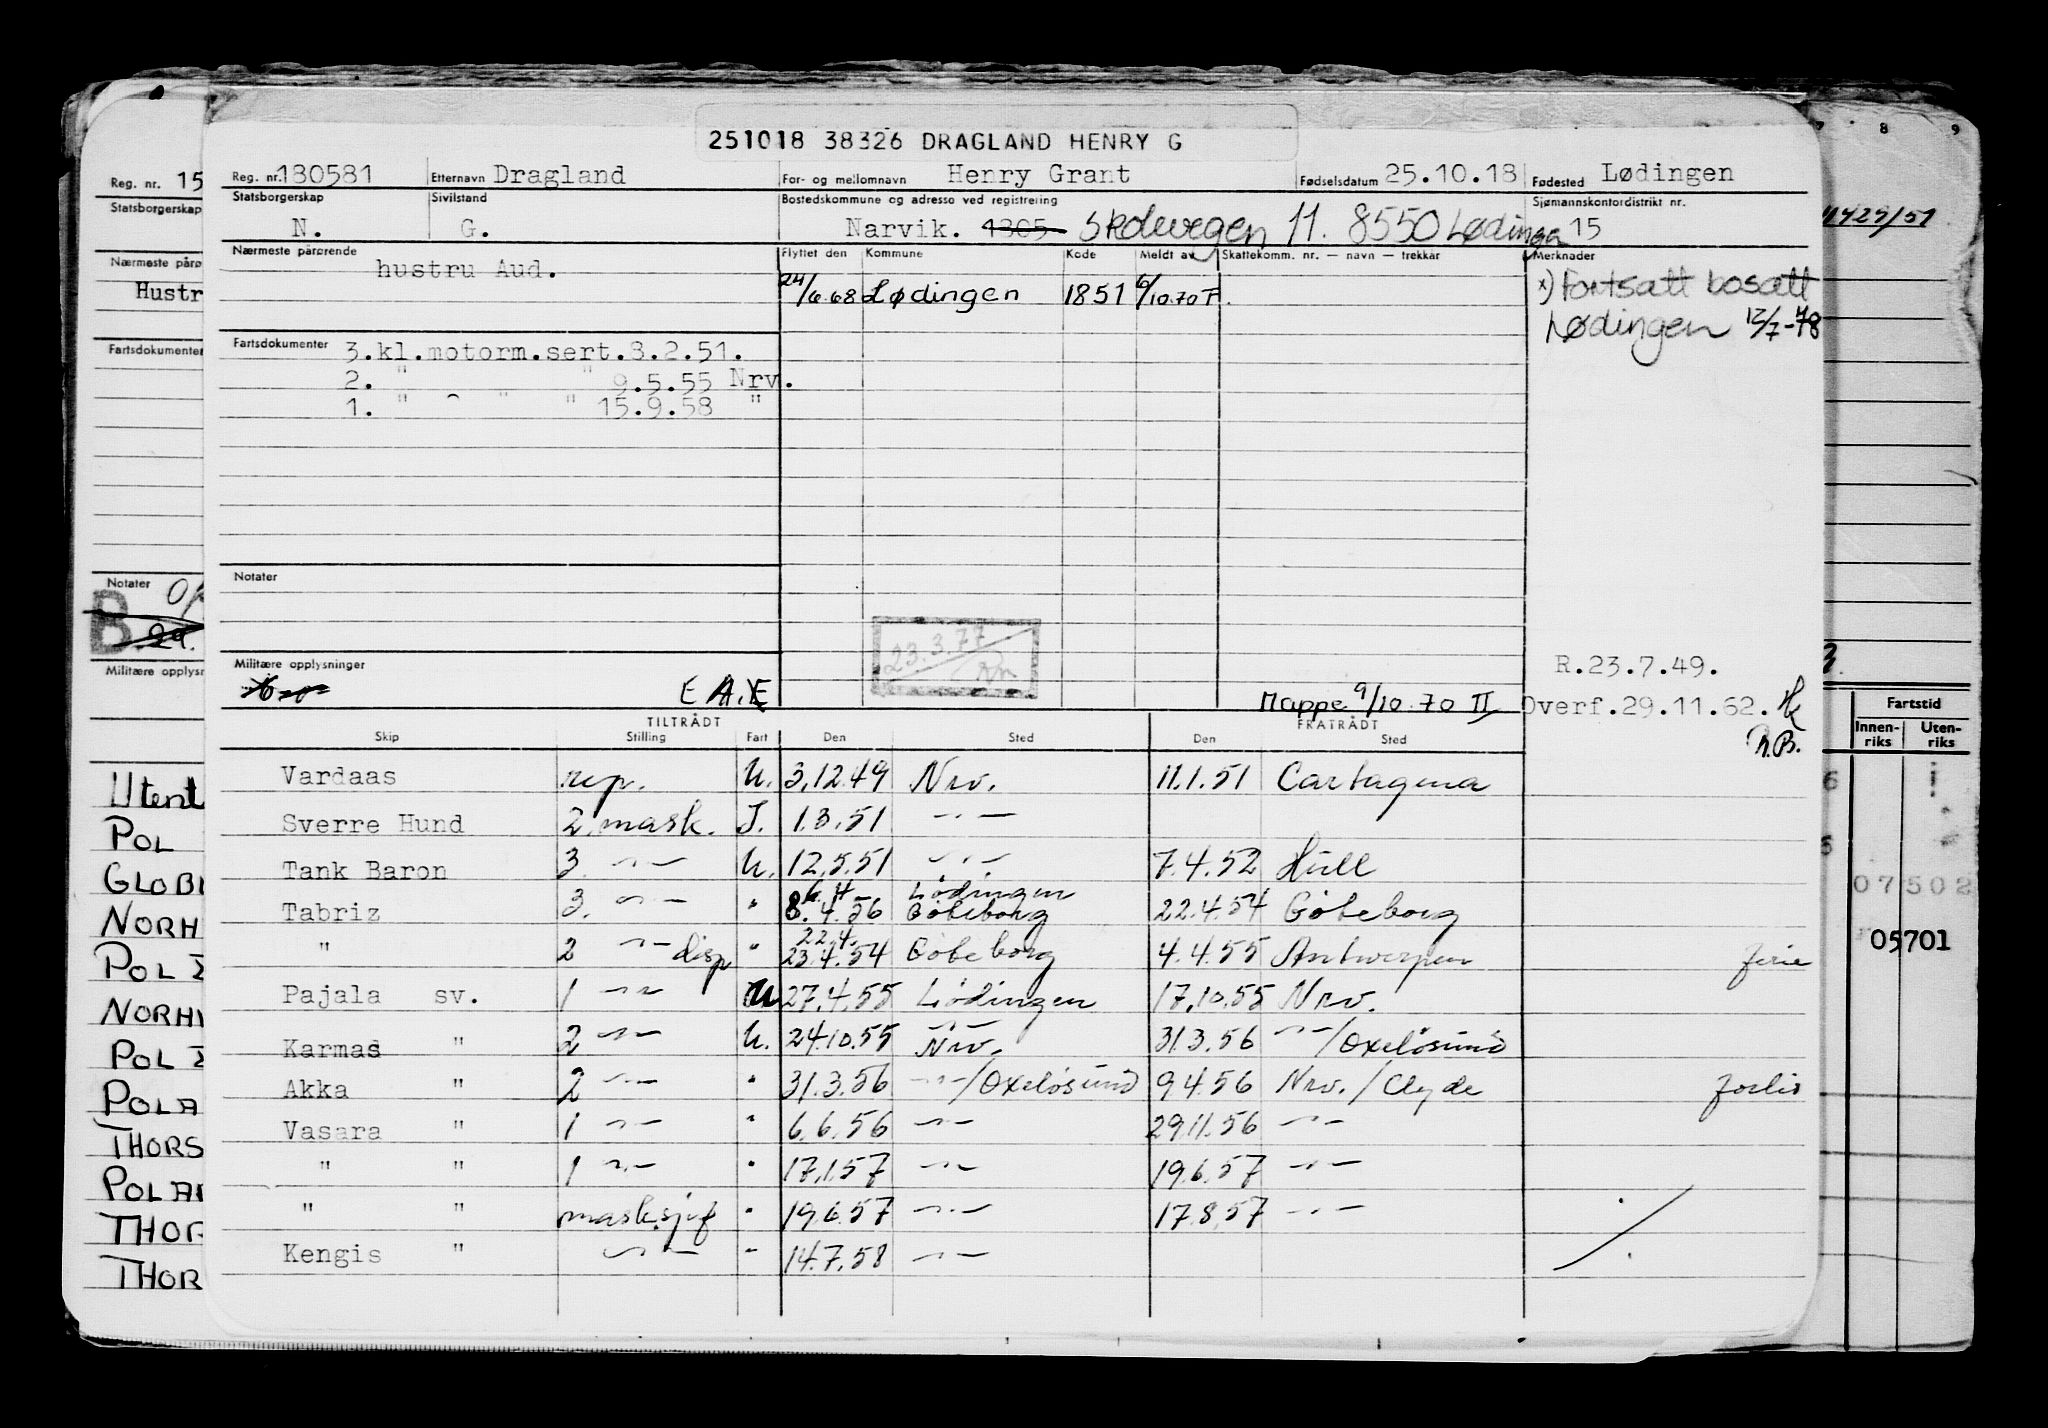 251018 38326 DRAGLAND HENRY G
Reg. nr. 180581 Etternavn Dragland For- og mellomnavn Henry Grant Fødselsdatum 25.10.18 Fødested Lødingen
Statsborgerskap Sivilstand Bostedskommune og adresse ved registrering Sjømannskontordistrikt nr.
N. G. Narvik. 1805 Skolevegen 11. 8550 Lødingen 15
Nærmeste pårørende Flyttet den Kommune Kode Meldt av Skattekomm. nr. — navn — trekkår Merknader
hustru Aud.
24/6.68 Lødingen 1851 6/10.70 F. x) Fortsatt bosatt
Lødingen 12/7-78
Fartsdokumenter 3.kl.motorm.sert.3.2.51.
2. " " 9.5.55 Nrv.
1. " " " 15.9.58 "
Notater
23.3.77
Militære opplysninger
R.23.7.49.
E A.E Mappe 9/10.70 II Overf.29.11.62.
TILTRÅDT FRATRÅDT
Skip Stilling Fart Den Sted Den Sted
Vardaas rep. U. 3.12.49 Nrv. 11.1.51 Cartagena
Sverre Hund 2. mask. I. 1.3.51 -"-
Tank Baron 3. -"- U. 12.5.51 -"- 7.4.52 Hull
6.4 Lödingen
Tabriz 3. -"- " 8.4.56 Göteborg 22.4.54 Göteborg
22.4.
" 2 -"- disp " 23.4.54 Göteborg 4.4.55 Antwerpen ferie
Pajala sv. 1 -"- U 27.4.55 Lödingen 17.10.55 Nrv.
Karmas " 2 -"- U. 24.10.55 Nrv. 31.3.56 -"-/Oxelösund
Akka " 2 -"- " 31.3.56 -"-/Oxelösund 9.4.56 Nrv./Clyde forlis
Vasara " 1 -"- " 6.6.56 -"- 29.11.56 -"-
" " 1 -"- " 17.1.57 -"- 19.6.57 -"-
" " mask.sjef " 19.6.57 -"- 17.8.57 -"-
Kengis " -"- " 14.7.58 -"-
Reg. nr. 15
Statsborgerskap
Nærmeste påre
Hustr
Fartsdokumenter
Notater
B
29.
Militære opplysn
Utent
POL
GLOB
NORH
POL
NORH
POL
POLA
THORS
POLA
THOR
THOR
8 9
11429/51
Fartstid
Innen-riks Uten-riks
07502
05701